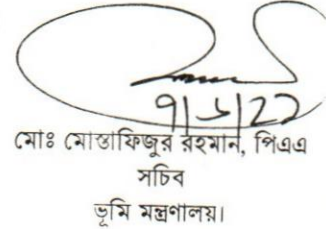 ৭/৬/২২
মোঃ মোস্তাফিজুর রহমান, পিএএ
সচিব
ভূমি মন্ত্রণালয়।